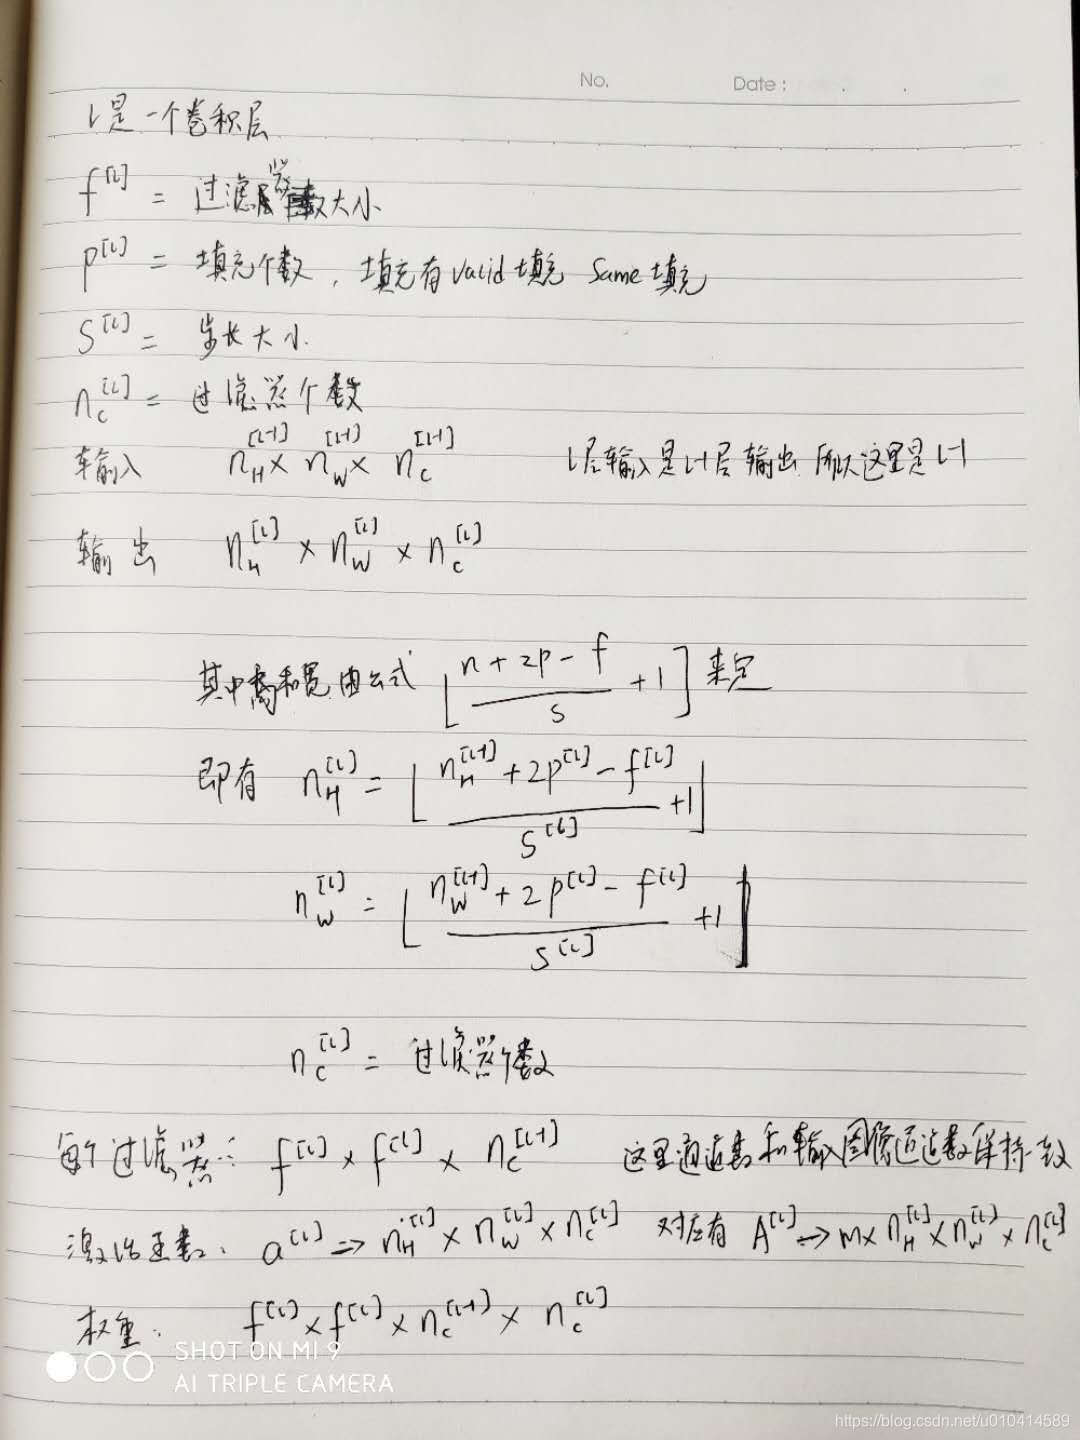 No. Date:
l是一个卷积层
f^[l] = 过滤器大小
p^[l] = 填充个数，填充有valid填充 Same填充
S^[l] = 步长大小.
n_c^[l] = 过滤器个数
输入 n_H^[l-1] × n_W^[l-1] × n_c^[l-1] l层输入是l-1层输出 所以这里是l-1
输出 n_H^[l] × n_W^[l] × n_c^[l]
其中高和宽由公式 ⌊(n + 2p - f)/s + 1⌋ 来定
即有 n_H^[l] = ⌊(n_H^[l-1] + 2p^[l] - f^[l])/S^[l] + 1⌋
n_W^[l] = ⌊(n_W^[l-1] + 2p^[l] - f^[l])/S^[l] + 1⌋
n_c^[l] = 过滤器个数
每个过滤器: f^[l] × f^[l] × n_c^[l-1] 这里通道数和输入图像通道数保持一致
激活函数: a^[l] → n_H^[l] × n_W^[l] × n_c^[l] 对应有 A^[l] → m × n_H^[l] × n_W^[l] × n_c^[l]
权重: f^[l] × f^[l] × n_c^[l-1] × n_c^[l]
SHOT ON MI 9
AI TRIPLE CAMERA
https://blog.csdn.net/u010414589